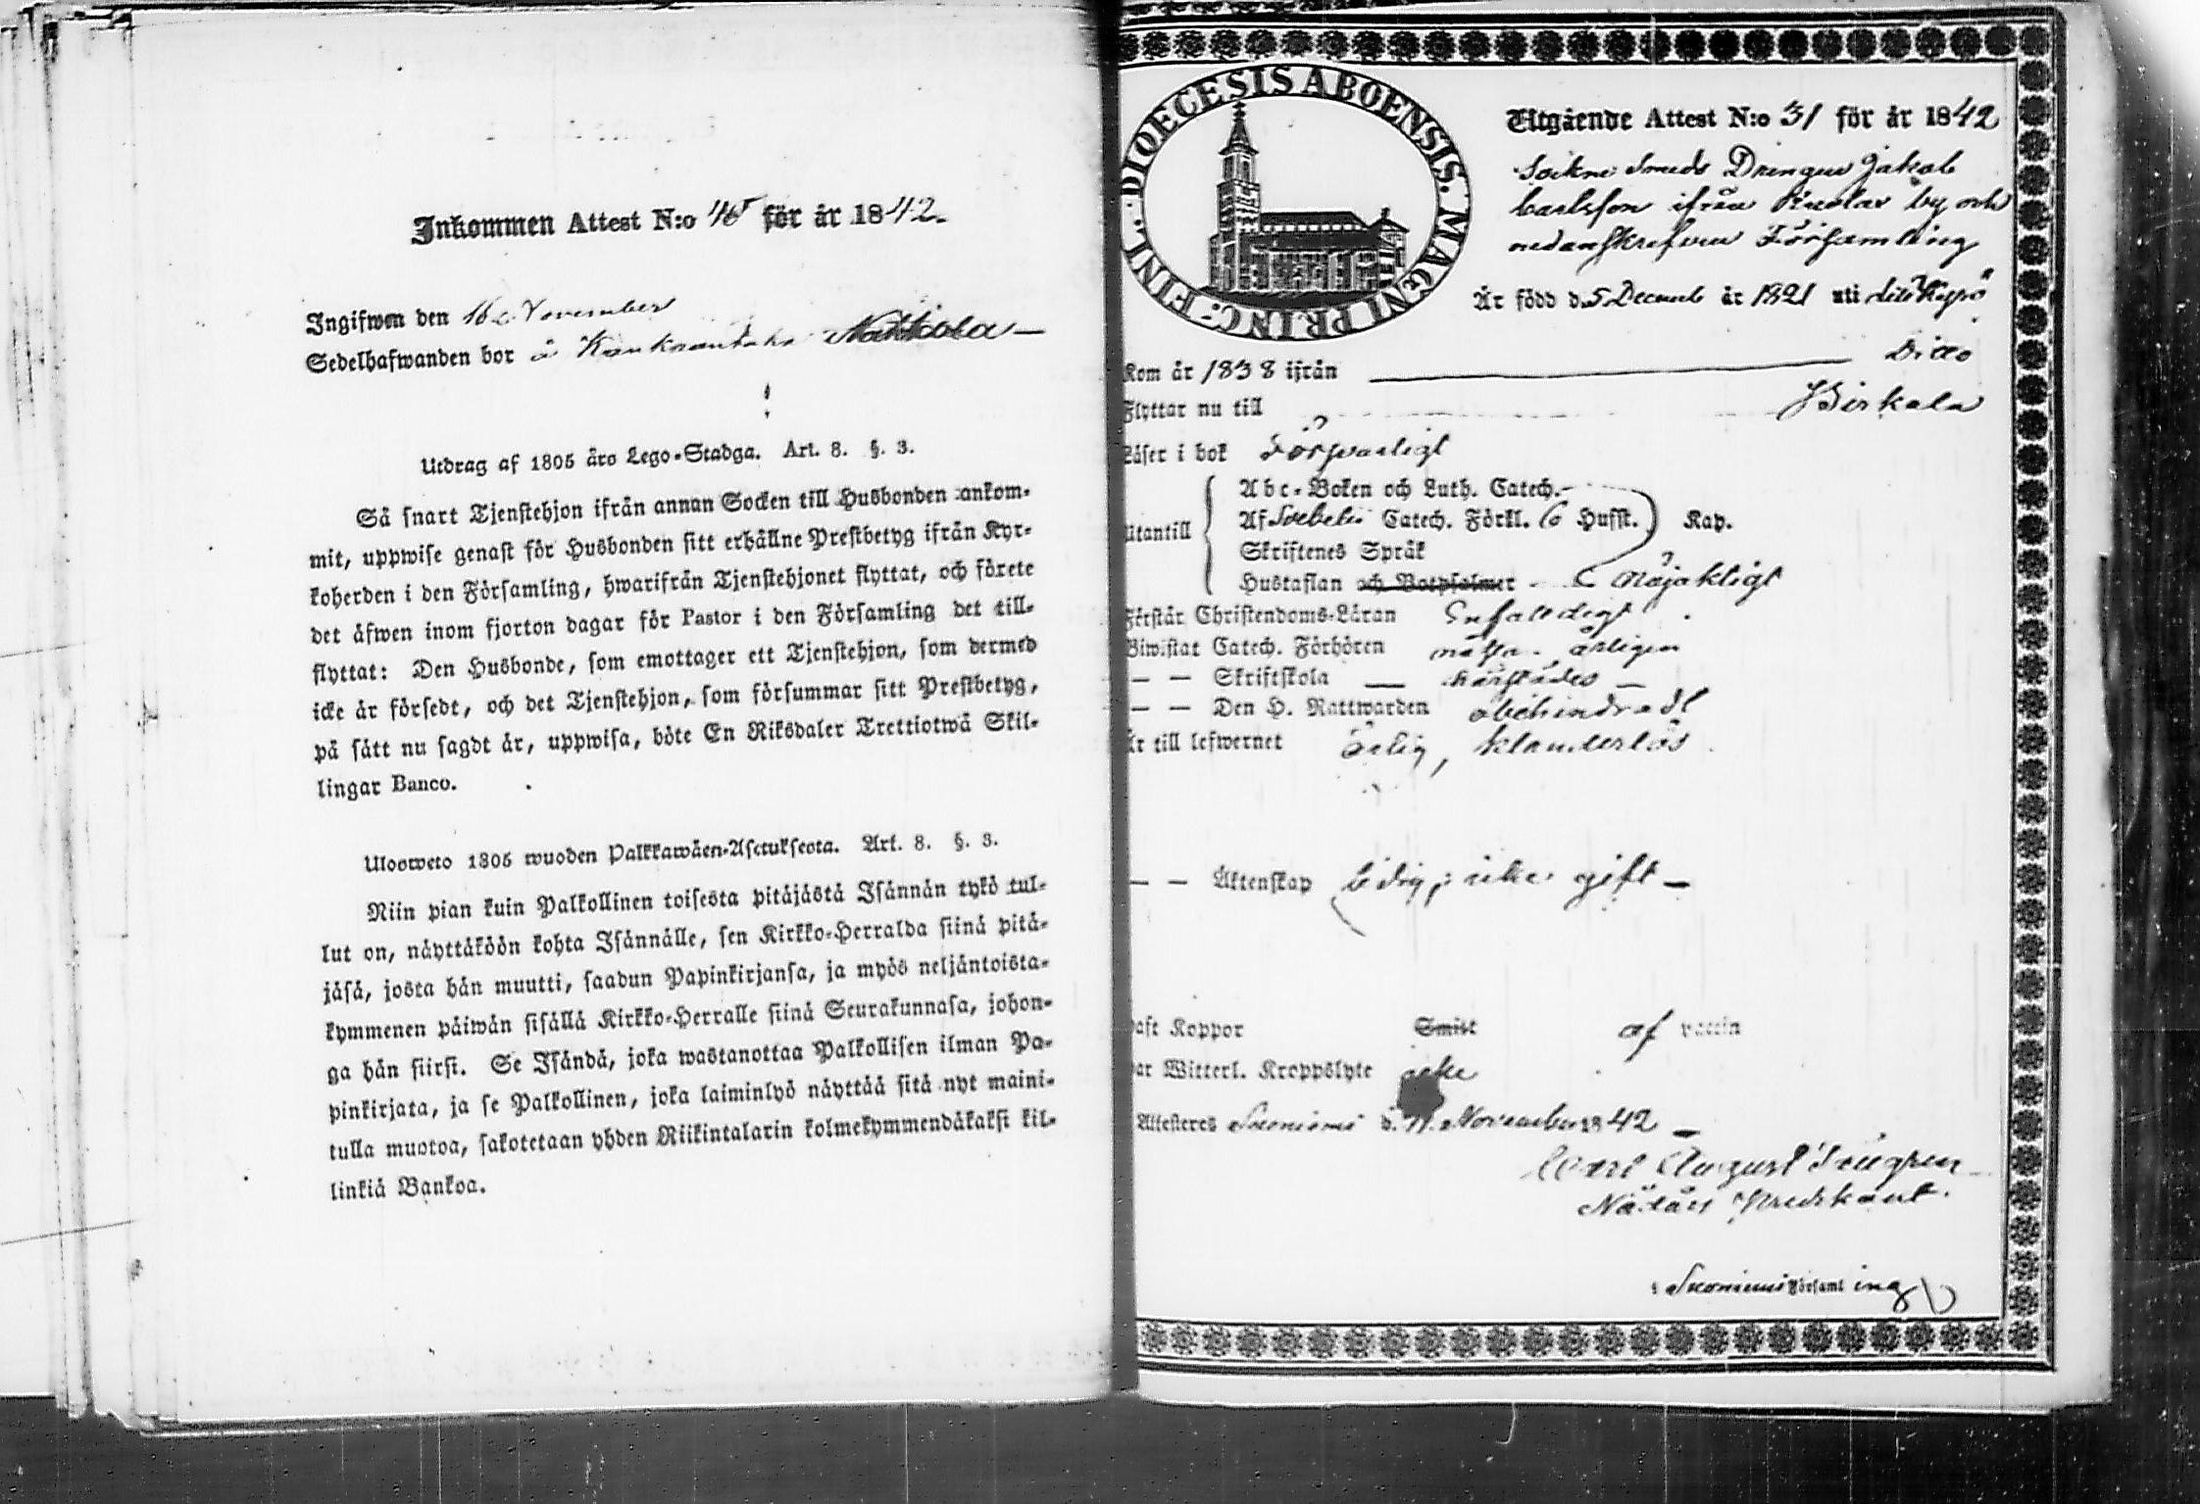 Inkommen Attest N:o för år 1842.
Ingifwen den 16 November
Sedelhafwanden bor å Nakkola
Utdrag af 1805 åro Lego-Stadga. Art. 8. §. 3.
Så snart Tjenstehjon ifrån annan Socken till Husbonden ankom-
mit, uppwise genast för Husbonden sitt erhållne Prestbetyg ifrån Kyr-
koherden i den Församling, hwarifrån Tjenstehjonet flyttat, och förete
det äfwen inom fjorton dagar för Pastor i den Församling det till-
flyttat: Den Husbonde, som emottager ett Tjenstehjon, som dermed
icke är försedt, och det Tjenstehjon, som försummar sitt Prestbetyg,
på sått nu sagdt är, uppwisa, böte En Riksdaler Trettiotwå Skil-
lingar Banco.
Ulosweto 1805 wuoden Palkkawäen-Asetuksesta. Art. 8. §. 3.
Niin pian kuin Palkollinen toisesta pitäjästä Isännän tykö tul-
lut on, näyttäköön kohta Isännälle, sen Kirkko-Herralda siinä pitä-
jäsä, josta hän muutti, saadun Papinkirjansa, ja myös neljäntoista-
kymmenen päiwän sisällä Kirkko-Herralle siinä Seurakunnasa, johon-
ga hän siirsi. Se Isändä, joka wastanottaa Palkollisen ilman Pa-
pinkirjata, ja se Palkollinen, joka laiminlyö näyttää sitä nyt maini-
tulla muotoa, sakotetaan yhden Riikintalarin kolmekymmendäkaksi kil-
linkiä Bankoa.
DIOECESIS ABOENSIS. MAGNI PRINC: FINL.
Utgående Attest N:o 31 för år 1842
Sockne Smeds Drengen Jakob
Carlsson ifrån by och
nedanskrefven Församling
Är född d. 5 Decemb år 1821 uti
Kom år 1838 ifrån Ditto
Flyttar nu till Birkala
Läser i bok Försvarligt
Utantill
Abc-Boken och Luth. Catech.
Af Svebelii Catech. Förkl. 6 Husst. Kap.
Skriftenes Språk
Hustaflan och Botpsalmer Nöjakligt
Förstår Christendoms-Läran Enfaldigt
Biwistat Catech. Förhören årligen
— — Skriftskola — härstädes —
— — Den H. Nattwarden obehindradt
Är till lefwernet ärlig, klanderlös
— — Äktenskap ledig; icke gift —
Haft Koppor Smitt af vaccin
Har Witterl. Kroppslyte icke
Attesteres Suoniemi d. 11. November 1842
Carl August
Predikant.
i Suoniemi Församling